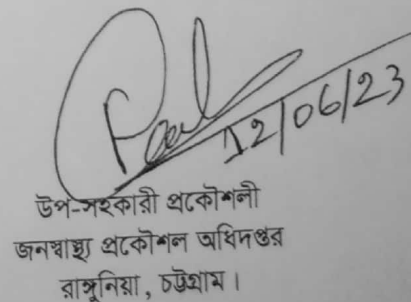 12/06/23
উপ-সহকারী প্রকৌশলী
জনস্বাস্থ্য প্রকৌশল অধিদপ্তর
রাঙ্গুনিয়া, চট্টগ্রাম।